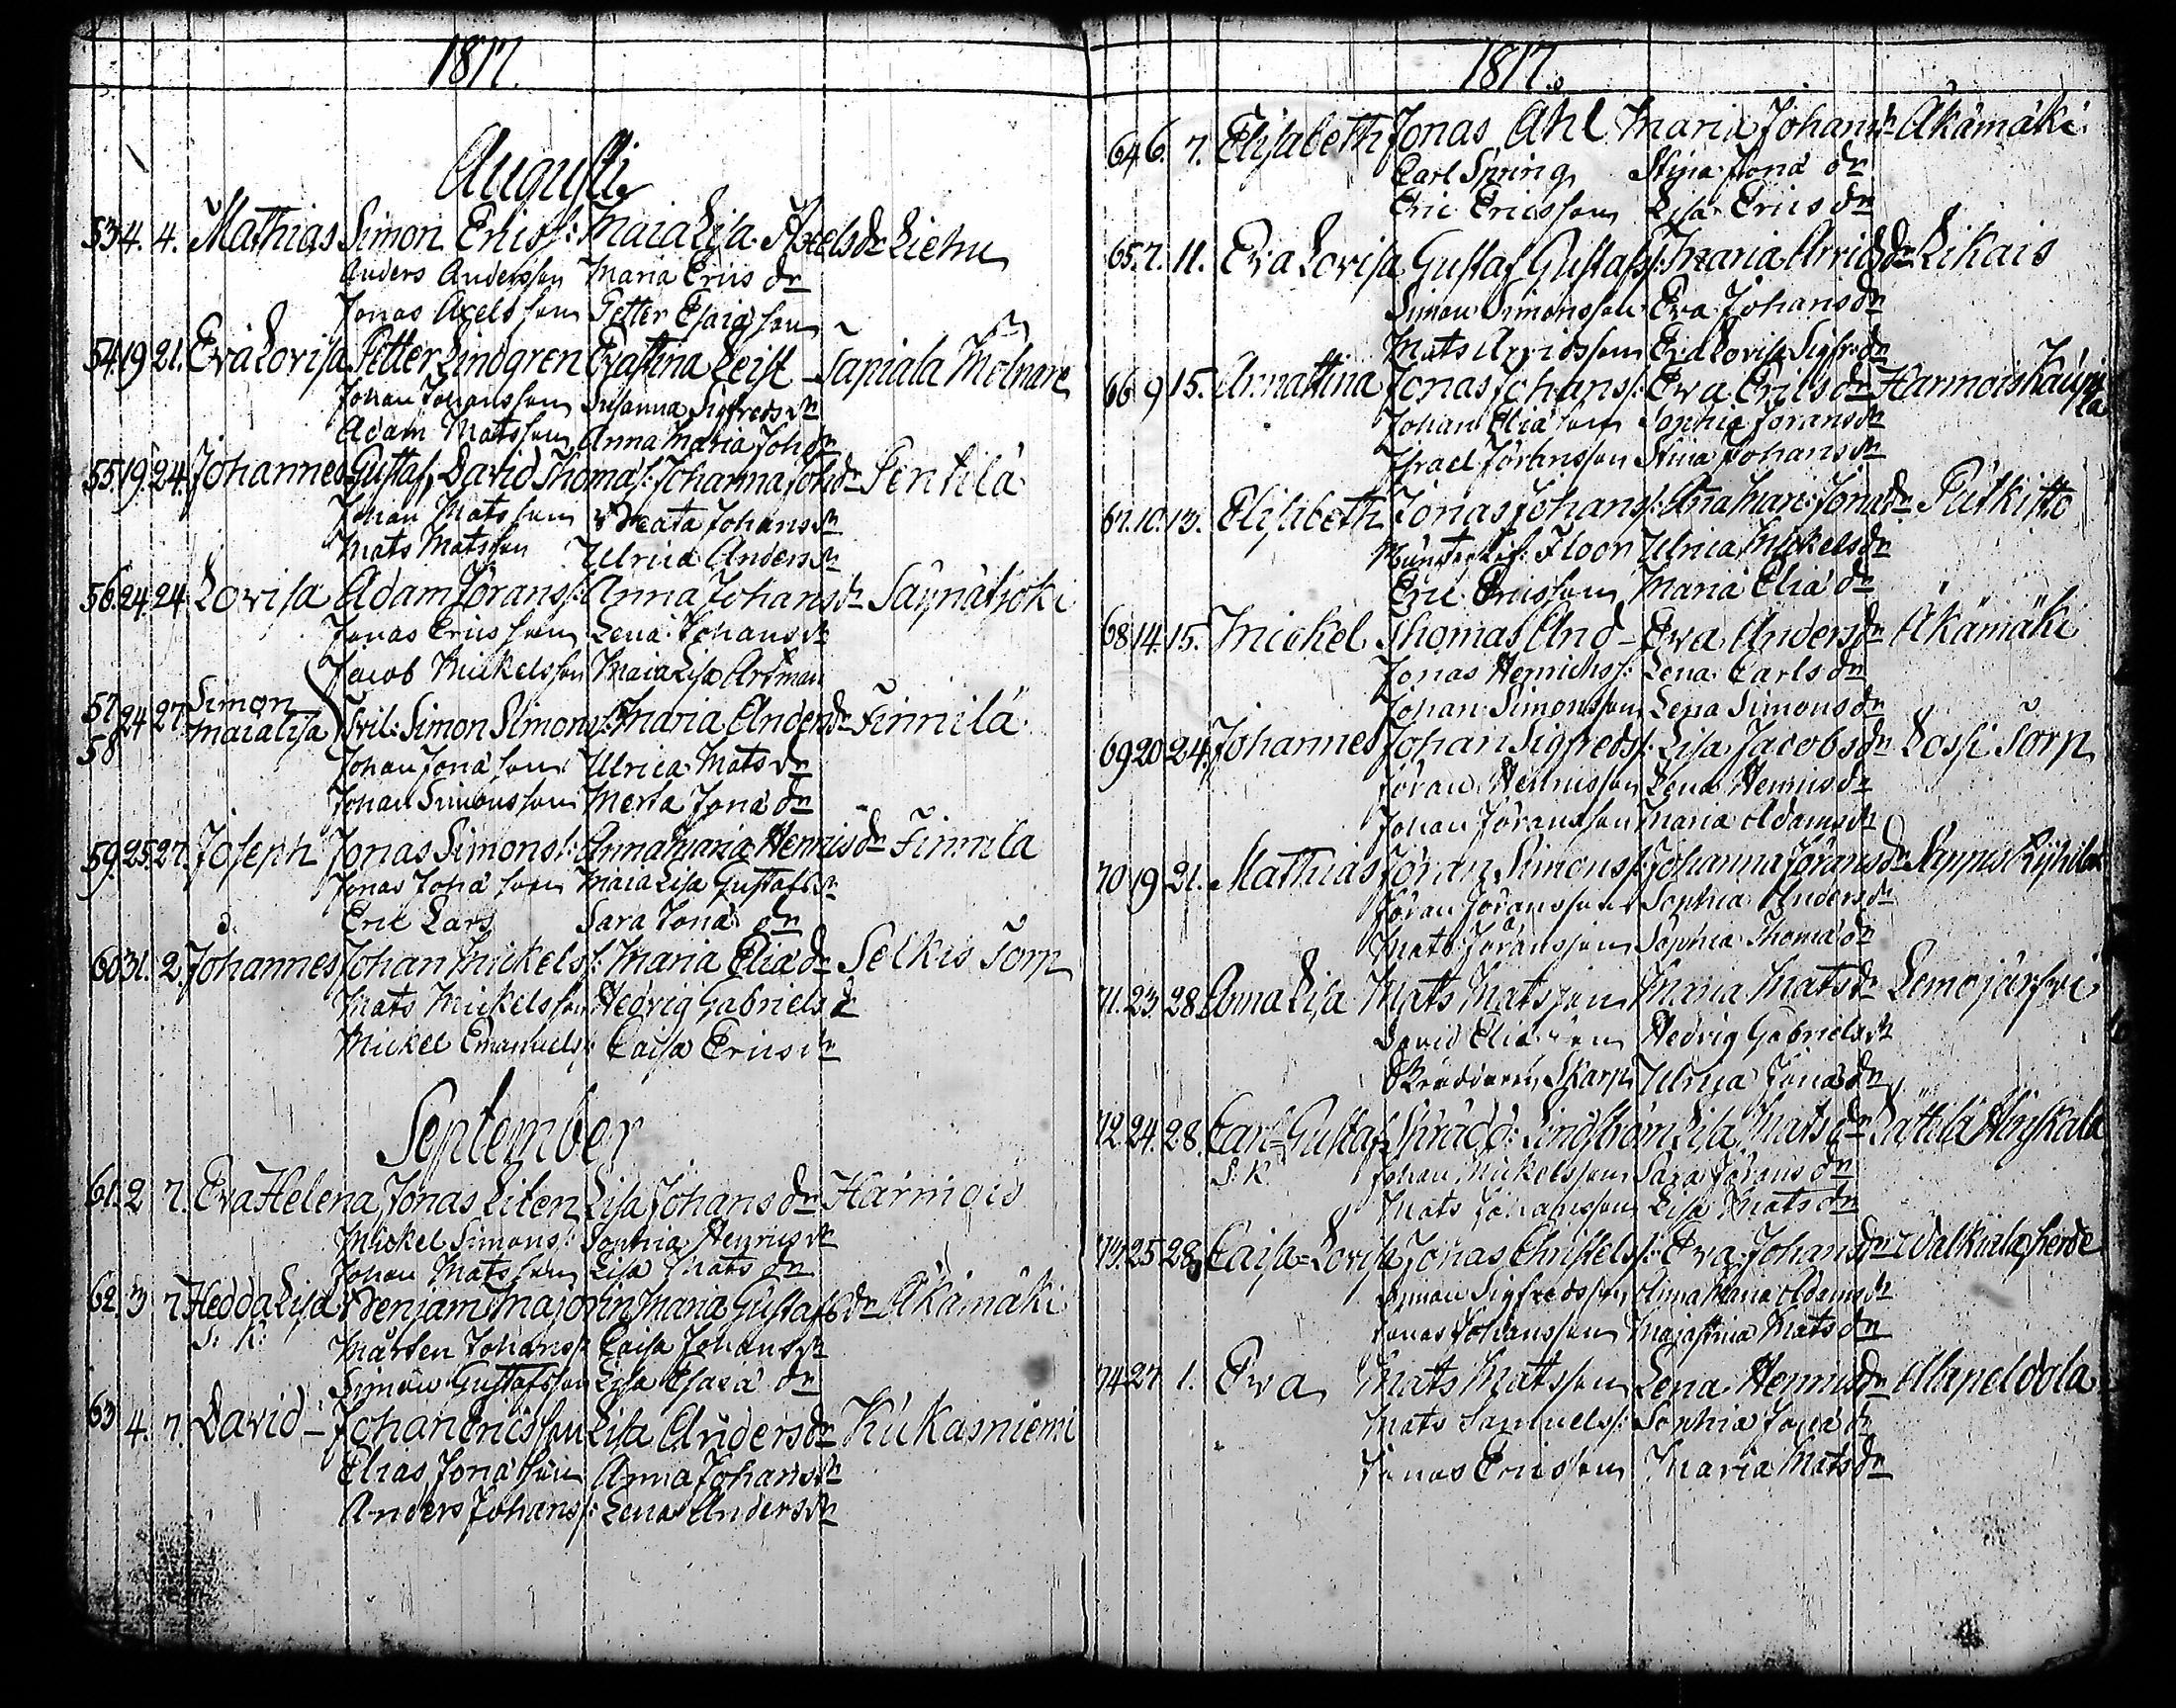 1817.
Augusti
53 4. 4. Mathias Simon Ericss: Maia Lisa Axelsdr Liehu
Anders Andersson Maria Erics dr
Jonas Axelsson Petter Esaiæson
54 19 21. Eva Lovisa Petter Lindgren Evastina Leist Tapiala Mölnare
Johan Johansson Susanna Sigfredsdr
Adam Matsson Anna Maria Joh dr
55. 19. 24. Johannes Gustaf David Thomæs: Johanna Johdr Pentilä
Johan Matsson Beata Johansdr
Mats Matsson Ulrica Andersdr
56. 24. 24. Lovisa Adam Jöranss: Anna Johansdr Säynätjoki
Jonas Ericsson Lena Johansdr
Jacob Mickelsson Maia Lisa Artman
57 24 27. Simon
58 Maialisa Tvil: Simon Simonss: Maria Andersdr Finnilä
Johan Jonæson Ulrica Matsdr
Johan Simonsson Merta Jonæ dr
59. 25. 27. Joseph Jonas Simonss: Annamaria Henricsdr Finnilä
Jonas Jonæson Maia Lisa Gustafsdr
Eric Lars Sara Jonæ dr
60 31. 2. Johannes Johan Mickelss: Maria Eliædr Selkis Torp
Mats Mickelsson Hedvig Gabrielsdr
Mickel Emanuels: Caisa Ericsdr
September
61. 2 7. Eva Helena Jonas Liten Lisa Johansdr Harmois
Mickel Simonss: Sophia Henricsdr
Johan Matsson Lisa Mats dr
62. 3 7 Hedda Lisa Benjam Majorin Maria Gustafsdr Äkämäki
S. K. Mårten Johanss: Caisa Johansdr
Simon Gustafsson Lisa Esaiæ dr
63 4. 7. David Johan Ericsson Lisa Andersdr Kukasniemi
Elias Jonæson Anna Johansdr
Anders Johanss: Lena Andersdr
1817.
64 6. 7. Elisabeth Jonas Ahl Maria Johansdr Äkämäki
Carl Spring Stina Jonæ dr
Eric Ericsson Lisa Erics dr
65 7. 11. Eva Lovisa Gustaf Gustafss: Maria Arvidsdr Likais
Simon Simonsson Eva Johansdr
Mats Arvidsson Eva Lovisa Sigfr: dr
66 9 15. Annastina Jonas Johanss: Eva Ericsdr Harmois Kauppila
Johan Eliæson Sophia Jöransdr
Israel Jöransson Stina Johansdr
67. 10. 13. Elisabeth Jonas Johanss: Ana Mari: Jonædr Putkisto
Floor Ulrica Mickelsdr
Eric Ericsson Maria Eliæ dr
68 14. 15. Mickel Thomas And Eva Andersdr Äkämäki
Jonas Henricss: Lena Carlsdr
Johan Simonsson Lena Simonsdr
69 20 24. Johannes Johan Sigfredss: Lisa Jacobsdr Lossi Torp
Jöran Henricsson Lena Henricsdr
Johan Jöransson Maria Adamsdr
70 19 21. Mathias Jöran Simonss: Johanna Jöransdr
Jöran Jöransson Sophia Andersdr
Mats Jöransson Sophia Thomæ dr
71. 23. 28 Anna Lisa Mats Matsson Maria Matsdr Lemojärfvi
David Eliæson Hedvig Gabrielsdr
Skräddaren Skarp Ulrica Jonædr
72. 24. 28. Carl Gustaf Skrädd: Lindström Lisa Mats dr
S. K. Johan Mickelsson Sara Jörans dr
Mats Johansson Lisa Matsdr
73. 25 28 Caisa=Lovisa Jonas Christelss: Eva Johansdr Walkiala herde
Simon Sigfredsson Anna Maria Adamsdr
Jonas Johansson Majastina Mats dr
74 27 1. Eva Mats Matsson Lena Henricsdr
Mats Samuelss: Sophia Jonæ dr
Jonas Ericsson Maria Matsdr